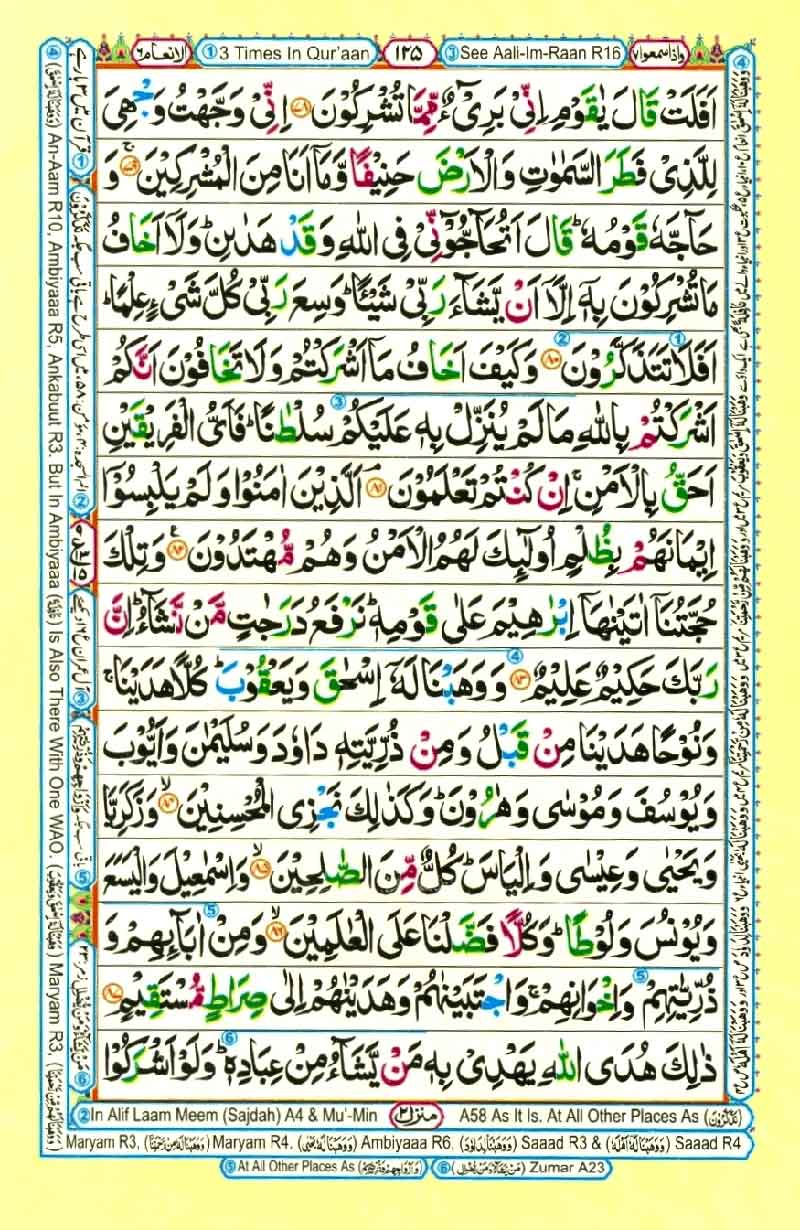 الانعام ٦
① 3 Times In Qur'aan
١٢٥
③ See Aali-Im-Raan R16
واذاسمعوا ٧
اَفَلَتْ قَالَ يٰقَوْمِ اِنِّىْ بَرِىْٓءٌ مِّمَّا تُشْرِكُوْنَ ﴿٧٨﴾ اِنِّىْ وَجَّهْتُ وَجْهِىَ
لِلَّذِىْ فَطَرَ السَّمٰوٰتِ وَالْاَرْضَ حَنِيْفًا وَّمَآ اَنَا مِنَ الْمُشْرِكِيْنَ ﴿٧٩﴾ وَ
حَآجَّهٗ قَوْمُهٗ ؕ قَالَ اَتُحَآجُّوْٓنِّىْ فِى اللّٰهِ وَقَدْ هَدٰىنِ ؕ وَلَآ اَخَافُ
مَا تُشْرِكُوْنَ بِهٖٓ اِلَّآ اَنْ يَّشَآءَ رَبِّىْ شَيْئًا ؕ وَسِعَ رَبِّىْ كُلَّ شَىْءٍ عِلْمًا ؕ
اَفَلَا تَتَذَكَّرُوْنَ ﴿٨٠﴾ وَكَيْفَ اَخَافُ مَآ اَشْرَكْتُمْ وَلَا تَخَافُوْنَ اَنَّكُمْ
اَشْرَكْتُمْ بِاللّٰهِ مَا لَمْ يُنَزِّلْ بِهٖ عَلَيْكُمْ سُلْطٰنًا ؕ فَاَىُّ الْفَرِيْقَيْنِ
اَحَقُّ بِالْاَمْنِ ۚ اِنْ كُنْتُمْ تَعْلَمُوْنَ ﴿٨١﴾ اَلَّذِيْنَ اٰمَنُوْا وَلَمْ يَلْبِسُوْٓا
اِيْمَانَهُمْ بِظُلْمٍ اُولٰٓئِكَ لَهُمُ الْاَمْنُ وَهُمْ مُّهْتَدُوْنَ ﴿٨٢﴾ وَتِلْكَ
حُجَّتُنَآ اٰتَيْنٰهَآ اِبْرٰهِيْمَ عَلٰى قَوْمِهٖ ؕ نَرْفَعُ دَرَجٰتٍ مَّنْ نَّشَآءُ ؕ اِنَّ
رَبَّكَ حَكِيْمٌ عَلِيْمٌ ﴿٨٣﴾ وَوَهَبْنَا لَهٗٓ اِسْحٰقَ وَيَعْقُوْبَ ؕ كُلًّا هَدَيْنَا ۚ
وَنُوْحًا هَدَيْنَا مِنْ قَبْلُ وَمِنْ ذُرِّيَّتِهٖ دَاوٗدَ وَسُلَيْمٰنَ وَاَيُّوْبَ
وَيُوْسُفَ وَمُوْسٰى وَهٰرُوْنَ ؕ وَكَذٰلِكَ نَجْزِى الْمُحْسِنِيْنَ ﴿٨٤﴾ وَزَكَرِيَّا
وَيَحْيٰى وَعِيْسٰى وَاِلْيَاسَ ؕ كُلٌّ مِّنَ الصّٰلِحِيْنَ ﴿٨٥﴾ وَاِسْمٰعِيْلَ وَالْيَسَعَ
وَيُوْنُسَ وَلُوْطًا ؕ وَكُلًّا فَضَّلْنَا عَلَى الْعٰلَمِيْنَ ﴿٨٦﴾ وَمِنْ اٰبَآئِهِمْ وَ
ذُرِّيّٰتِهِمْ وَاِخْوَانِهِمْ ۚ وَاجْتَبَيْنٰهُمْ وَهَدَيْنٰهُمْ اِلٰى صِرَاطٍ مُّسْتَقِيْمٍ ﴿٨٧﴾
ذٰلِكَ هُدَى اللّٰهِ يَهْدِىْ بِهٖ مَنْ يَّشَآءُ مِنْ عِبَادِهٖ ؕ وَلَوْ اَشْرَكُوْا
④ (وَوَهَبْنَا لَهٗٓ اِسْحٰقَ) An-Aam R10, Ambiyaaa R5, Ankabuut R3. But In Ambiyaaa (نَافِلَةً) Is Also There With One WAO. (وَهَبْنَا لَهٗٓ اِسْحٰقَ وَيَعْقُوْبَ) Maryam R3,
② In Alif Laam Meem (Sajdah) A4 & Mu'-Min
منزل ٢
A58 As It Is. At All Other Places As (تَذَكَّرُوْنَ)
Maryam R3, Maryam R4. Ambiyaaa R6. (وَوَهَبْنَا لِدَاوٗدَ) Saaad R3 & (وَوَهَبْنَا لَهٗٓ اَهْلَهٗ) Saaad R4
⑤ At All Other Places As
⑥ Zumar A23